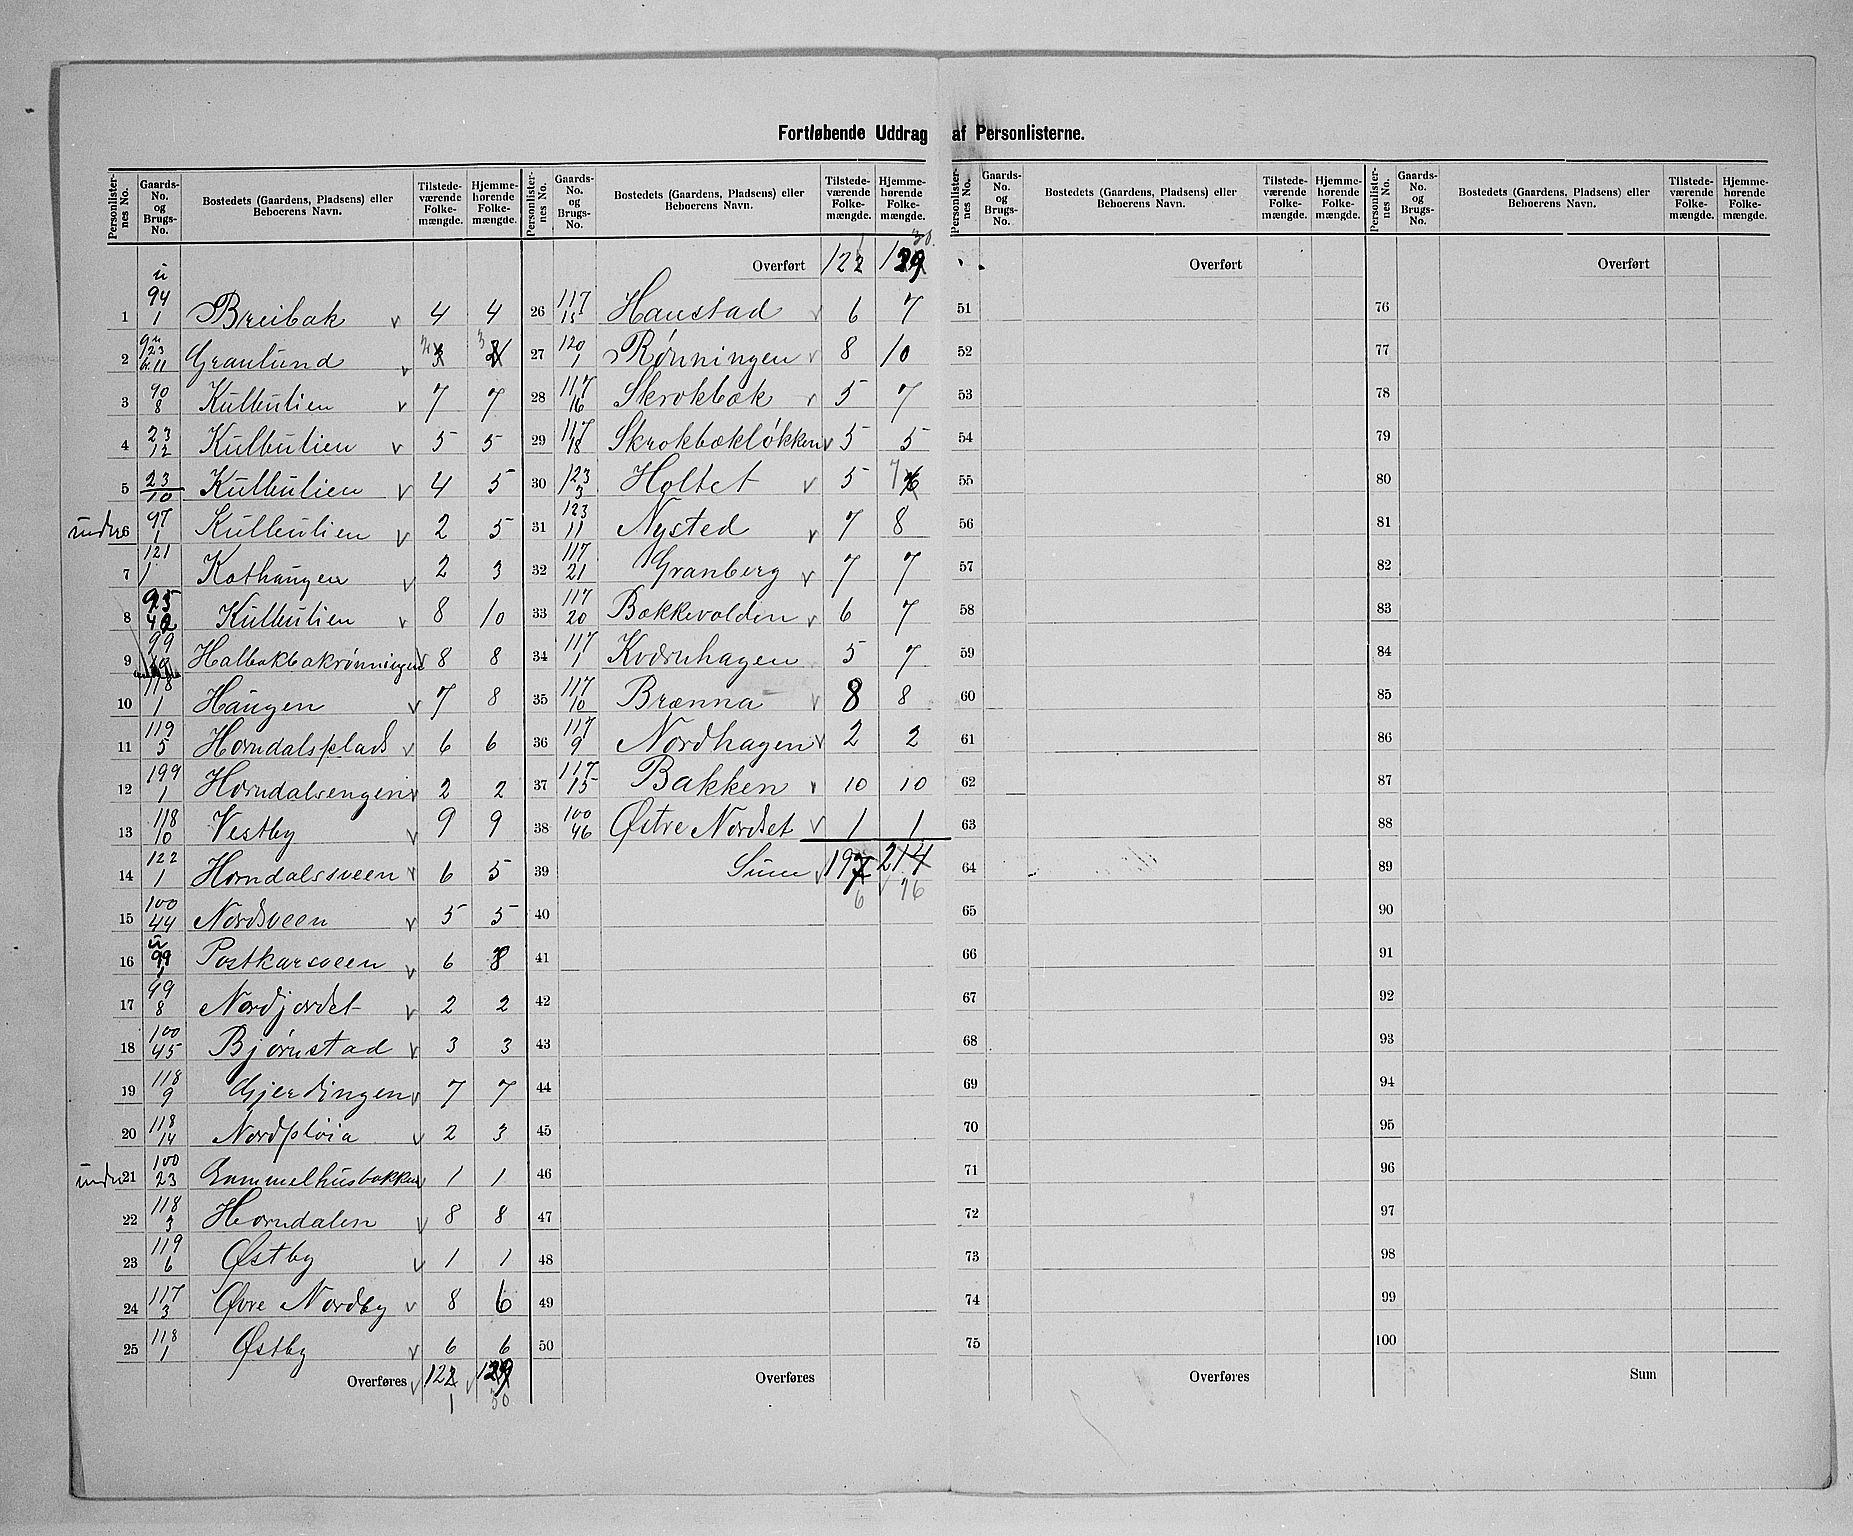 Fortløbende Uddrag af Personlisterne.
Personlisternes No. | Gaards-No. og Brugs-No. | Bostedets (Gaardens, Pladsens) eller Beboerens Navn. | Tilstedeværende Folkemængde. | Hjemmehørende Folkemængde.
1 | u 94 1 | Breibak v | 4 | 4
2 | Granlund v
3 | 90 8 | Kulbulien v | 7 | 7
4 | 23 12 | Kulbulien v | 5 | 5
5 | 23 10 | Kulbulien v | 4 | 5
under 6 | 97 1 | Kulbulien v | 2 | 5
7 | 121 1 | Kathaugen v | 2 | 3
8 | Kulbulien v | 8 | 10
9 | 99 | Halbakbakrønningen v | 8 | 8
10 | 118 1 | Haugen v | 7 | 8
11 | 119 5 | Horndalsplads v | 6 | 6
12 | 199 1 | Horndalsengen v | 2 | 2
13 | 118 10 | Vestby v | 9 | 9
14 | 122 1 | Horndalssveen v | 6 | 5
15 | 100 44 | Nordsveen v | 5 | 5
16 | u 99 1 | Postkarsveen v | 6 | 8
17 | 99 8 | Nordjordet v | 2 | 2
18 | 100 45 | Bjørnstad v | 3 | 3
19 | 118 9 | Gjerdingen v | 7 | 7
20 | 118 14 | Nordpløia v | 2 | 3
under 21 | 100 23 | Gammelhusbakken v | 1 | 1
22 | 118 3 | Horndalen v | 8 | 8
23 | 119 6 | Østby v | 1 | 1
24 | 117 3 | Øvre Nordby v | 8 | 6
25 | 118 1 | Østby v | 6 | 6
Overføres v 122 v 129
1 30
Personlisternes No. | Gaards-No. og Brugs-No. | Bostedets (Gaardens, Pladsens) eller Beboerens Navn. | Tilstedeværende Folkemængde. | Hjemmehørende Folkemængde.
30
Overført 122 129
26 | 117 | Haustad v | 6 | 7
27 | 120 1 | Rønningen v | 8 | 10
28 | 117 16 | Skrokbæk v | 5 | 7
29 | 117 18 | Skrokbækløkken v | 5 | 5
30 | 123 3 | Holtet v | 5 | 7 6
31 | 123 11 | Nysted v | 7 | 8
32 | 117 21 | Granberg v | 7 | 7
33 | 117 20 | Bækkevolden v | 6 | 7
34 | 117 1 | Kværnhagen | 5 | 7
35 | 117 10 | Brænna v | 8 | 8
36 | 117 9 | Nordhagen v | 2 | 2
37 | 117 15 | Bakken v | 10 | 10
38 | 100 46 | Østre Nordset v | 1 | 1
39 | Sum v 197 214
6 v 16
40
41
42
43
44
45
46
47
48
49
50
Overføres
Personlisternes No. | Gaards-No. og Brugs-No. | Bostedets (Gaardens, Pladsens) eller Beboerens Navn. | Tilstedeværende Folkemængde. | Hjemmehørende Folkemængde.
Overført
51
52
53
54
55
56
57
58
59
60
61
62
63
64
65
66
67
68
69
70
71
72
73
74
75
Overføres
Personlisternes No. | Gaards-No. og Brugs-No. | Bostedets (Gaardens, Pladsens) eller Beboerens Navn. | Tilstedeværende Folkemængde. | Hjemmehørende Folkemængde.
Overført
76
77
78
79
80
81
82
83
84
85
86
87
88
89
90
91
92
93
94
95
96
97
98
99
100
Sum